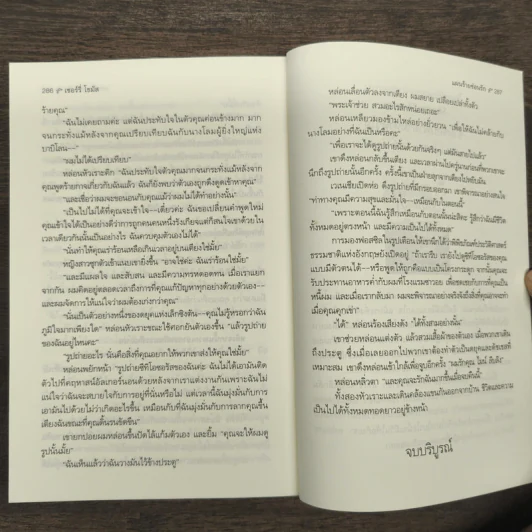 286 เชอร์รี่ โธมัส
ร้ายคุณ"
"ฉันไม่เคยถามค่ะ แต่ฉันประทับใจในตัวคุณค่อนข้างมาก มาก
จนกระทั่งแม้หลังจากคุณเปรียบเทียบฉันกับนางโลมผู้ยิ่งใหญ่แห่ง
บาบิโลน—"
"ผมไม่ได้เปรียบเทียบ"
หล่อนหัวเราะคิก "ฉันประทับใจในตัวคุณมากจนกระทั่งแม้หลังจาก
คุณพูดร้ายกาจเกี่ยวกับฉันแล้ว ฉันก็ยังพบว่าตัวเองถูกดึงดูดเข้าหาคุณ"
"และเชื่อว่าผมจะขอนอนกับคุณแม้ว่าผมจะไม่ได้ทำอย่างนั้น"
"เป็นไปไม่ได้ที่คุณจะเข้าใจ—เดี๋ยวค่ะ ฉันขอเปลี่ยนคำพูดใหม่
คุณเข้าใจได้เป็นอย่างดีว่าการถูกคนคนหนึ่งรังเกียจแต่ก็สนใจเขาด้วยใน
เวลาเดียวกันนั้นเป็นอย่างไร ฉันควบคุมตัวเองไม่ได้"
"นั่นทำให้คุณเร่าร้อนเหลือเกินเวลาอยู่บนเตียงใช่มั้ย"
หญิงสาวซุกตัวเข้าแนบเขายิ่งขึ้น "อาจใช่ค่ะ ฉันเร่าร้อนใช่มั้ย"
"และมีแผลใจ และสับสน และมีความทรหดอดทน เมื่อเราแยก
จากกัน ผมคิดอยู่ตลอดเวลาถึงการที่คุณแก้ปัญหาทุกอย่างด้วยตัวเอง—
และผมจัดการให้แน่ใจว่าผมต้องเก่งกว่าคุณ"
"นั่นเป็นตัวอย่างหนึ่งของยุคแห่งเล็กซิงตัน—คุณไม่รู้หรอกว่าฉัน
ภูมิใจมากเพียงใด" หล่อนหัวเราะขณะใช้ศอกยันตัวเองขึ้น "แล้วรูปถ่าย
ของฉันอยู่ไหนคะ"
"รูปถ่ายอะไร นั่นคือสิ่งที่คุณอยากให้พวกเขาส่งให้คุณใช่มั้ย"
หล่อนพยักหน้า "รูปถ่ายซีทิโอซอรัสของฉันค่ะ ฉันไม่ได้เอามันติด
ตัวไปที่คฤหาสน์อัลเกร์นอนด้วยหลังจากเราแต่งงานกันเพราะฉันไม่
แน่ใจว่าฉันจะสบายใจกับการอยู่ที่นั่นหรือไม่ แต่เวลานี้ฉันมุ่งมั่นกับการ
เอามันไปด้วยไม่ว่าจะเกิดอะไรขึ้น เหมือนกับที่ฉันมุ่งมั่นกับการลากคุณขึ้น
เตียงฉันขณะที่คุณดิ้นรนขัดขืน"
เขายกปอยผมหล่อนขึ้นปัดไล้แก้มตัวเอง และยิ้ม "คุณจะให้ผมดู
รูปนั้นมั้ย"
"ฉันเห็นแล้วว่าฉันวางมันไว้ข้างประตู"
แผนร้ายซ่อนรัก 287
หล่อนเลื่อนตัวลงจากเตียง ผมสยาย เปลือยเปล่าทั้งตัว
"พระเจ้าช่วย สวมอะไรสักหน่อยเถอะ"
หล่อนเหลียวมองข้ามไหล่อย่างยั่วยวน "เพื่อให้ฉันไม่คล้ายกับ
นางโลมอย่างที่ฉันเป็นหรือคะ"
"เพื่อเราจะได้ดูรูปถ่ายนั้นด้วยกันจริงๆ แต่มันสายไปแล้ว"
เขาดึงหล่อนกลับขึ้นเตียง และเวลาผ่านไปครู่นานก่อนที่พวกเขาจะ
นึกถึงรูปถ่ายนั้นอีกครั้ง ครั้งนี้เขาเป็นฝ่ายลุกจากเตียงไปหยิบมัน
เวเนเชียเปิดห่อ ดึงรูปถ่ายที่มีกรอบออกมา เขาพิจารณาอย่างสนใจ
"ท่าทางคุณมีความสุขและมั่นใจ—เหมือนกับในตอนนี้"
"เพราะตอนนี้ฉันรู้สึกเหมือนกับตอนนั้นน่ะสิคะ รู้สึกว่าฉันมีชีวิต
ทั้งหมดอยู่ตรงหน้า และมีความเป็นไปได้ทั้งหมด"
การมองฟอสซิลในรูปเตือนให้เขานึกได้ว่าพิพิธภัณฑ์ประวัติศาสตร์
ธรรมชาติแห่งอังกฤษยังเปิดอยู่
แบบมีตัวตนได้—หรือพูดให้ถูกคือแบบเป็นโครงกระดูก จากนั้นคุณจะ
รับประทานอาหารค่ำกับผมที่โรงแรมซาวอย เพื่อชดเชยกับการที่คุณเป็น
หนี้ผม และเมื่อเรากลับมา ผมจะพิจารณาอย่างจริงจังถึงสิ่งที่คุณอาจจะทำ
เมื่อคุณคุกเข่า"
"ได้" หล่อนร้องเสียงดัง "ได้ทั้งสามอย่างนั้น"
เขาช่วยหล่อนแต่งตัว แล้วสวมเสื้อผ้าของตัวเอง เมื่อพวกเขาเดิน
ถึงประตู
เหมาะสม เขาดึงหล่อนเข้าใกล้เพื่อจูบอีกครั้ง "ผมรักคุณ
หล่อนหลิ่วตา "และคุณจะรักฉันมากขึ้นเมื่อจบคืนนี้"
ทั้งสองหัวเราะและเดินคล้องแขนกันออกจากบ้าน ชีวิตและความ
เป็นไปได้ทั้งหมดทอดยาวอยู่ข้างหน้า
จบบริบูรณ์